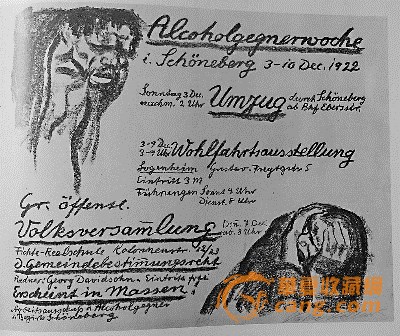 Alcoholgegnerwoche
i. Schöneberg 3-10 Dec. 1922
Sonntag 3 Dec.
nachm. 2 Uhr
Umzug
durch Schöneberg
ab Bhf Ebersstr.
3-9 Dec.
3-9 Uhr
Wohlfahrtsausstellung
Logenheim Gustav-Freytagstr 5
Eintritt 3 M
Führungen Sonnt 4 Uhr
Dienst. 8 Uhr
Gr. öffentl.
Volksversam̄lung
7 Dec.
ab. 8 Uhr
Fichte-Realschule
D. Gemeindebestimmungsrecht
Redner: Georg Davidsohn Eintritt frei
Erscheint in Massen
Arbeitsausschuss d. Alcoholgegner
Schöneberg
华夏收藏网
cang.com